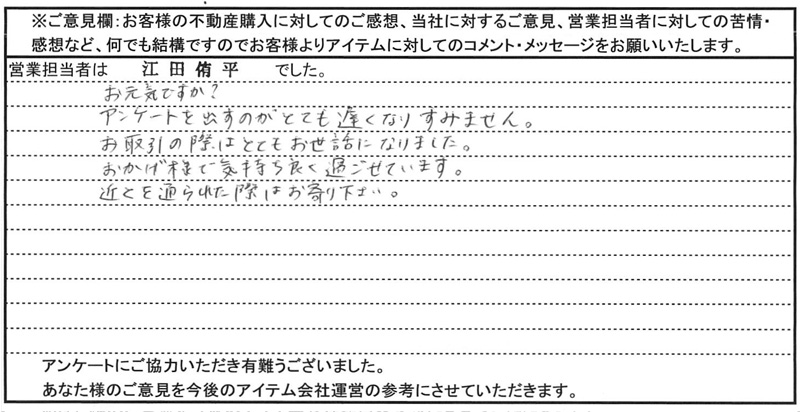 ※ご意見欄：お客様の不動産購入に対してのご感想、当社に対するご意見、営業担当者に対しての苦情・
感想など、何でも結構ですのでお客様よりアイテムに対してのコメント・メッセージをお願いいたします。
営業担当者は 江田侑平 でした。
お元気ですか？
アンケートを出すのがとても遅くなりすみません。
お取引の際はとてもお世話になりました。
おかげ様で気持ち良く過ごせています。
近くを通られた際はお寄り下さい。
アンケートにご協力いただき有難うございました。
あなた様のご意見を今後のアイテム会社運営の参考にさせていただきます。